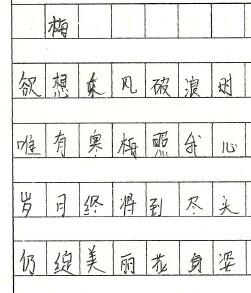 梅
欲想乘风破浪时
唯有寒梅照我心
岁月终将到尽头
仍绽美丽花身姿